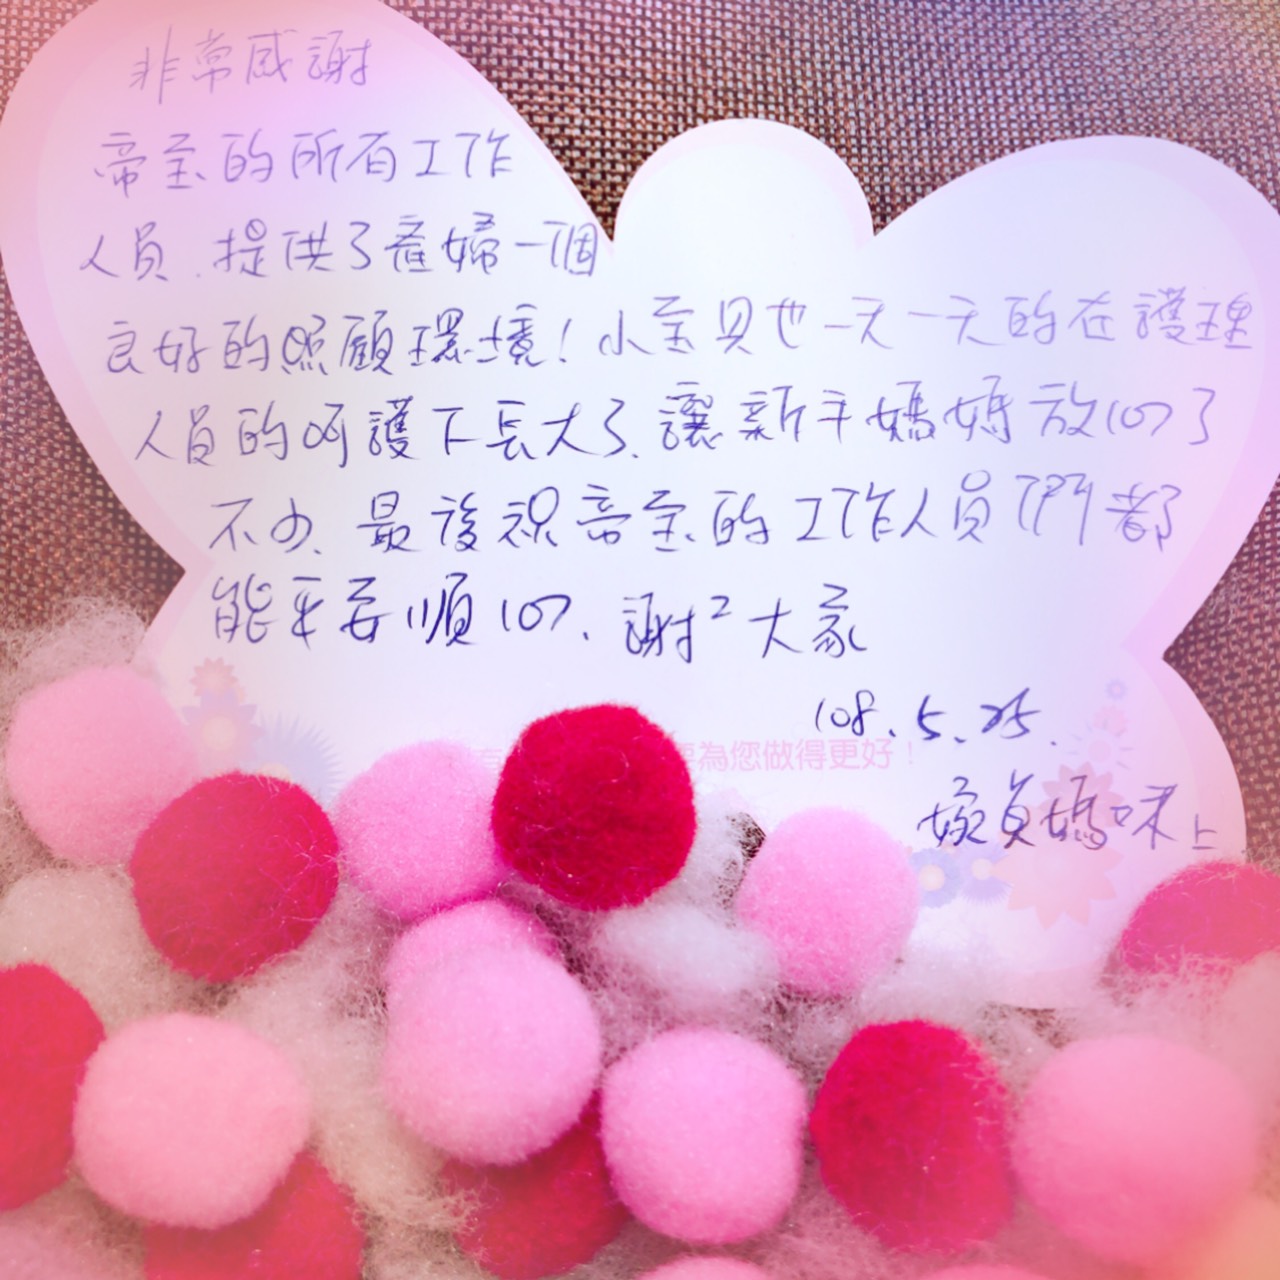 非常感謝
帝宝的所有工作
人員．提供了產婦一個
良好的照顧環境！小宝貝也一天一天的在護理
人員的呵護下長大了、讓新手媽媽放心了
不少、最後祝帝宝的工作人員們都
能平安順心、謝²大家
108.5.25.
為您做得更好！
婉貞媽咪上